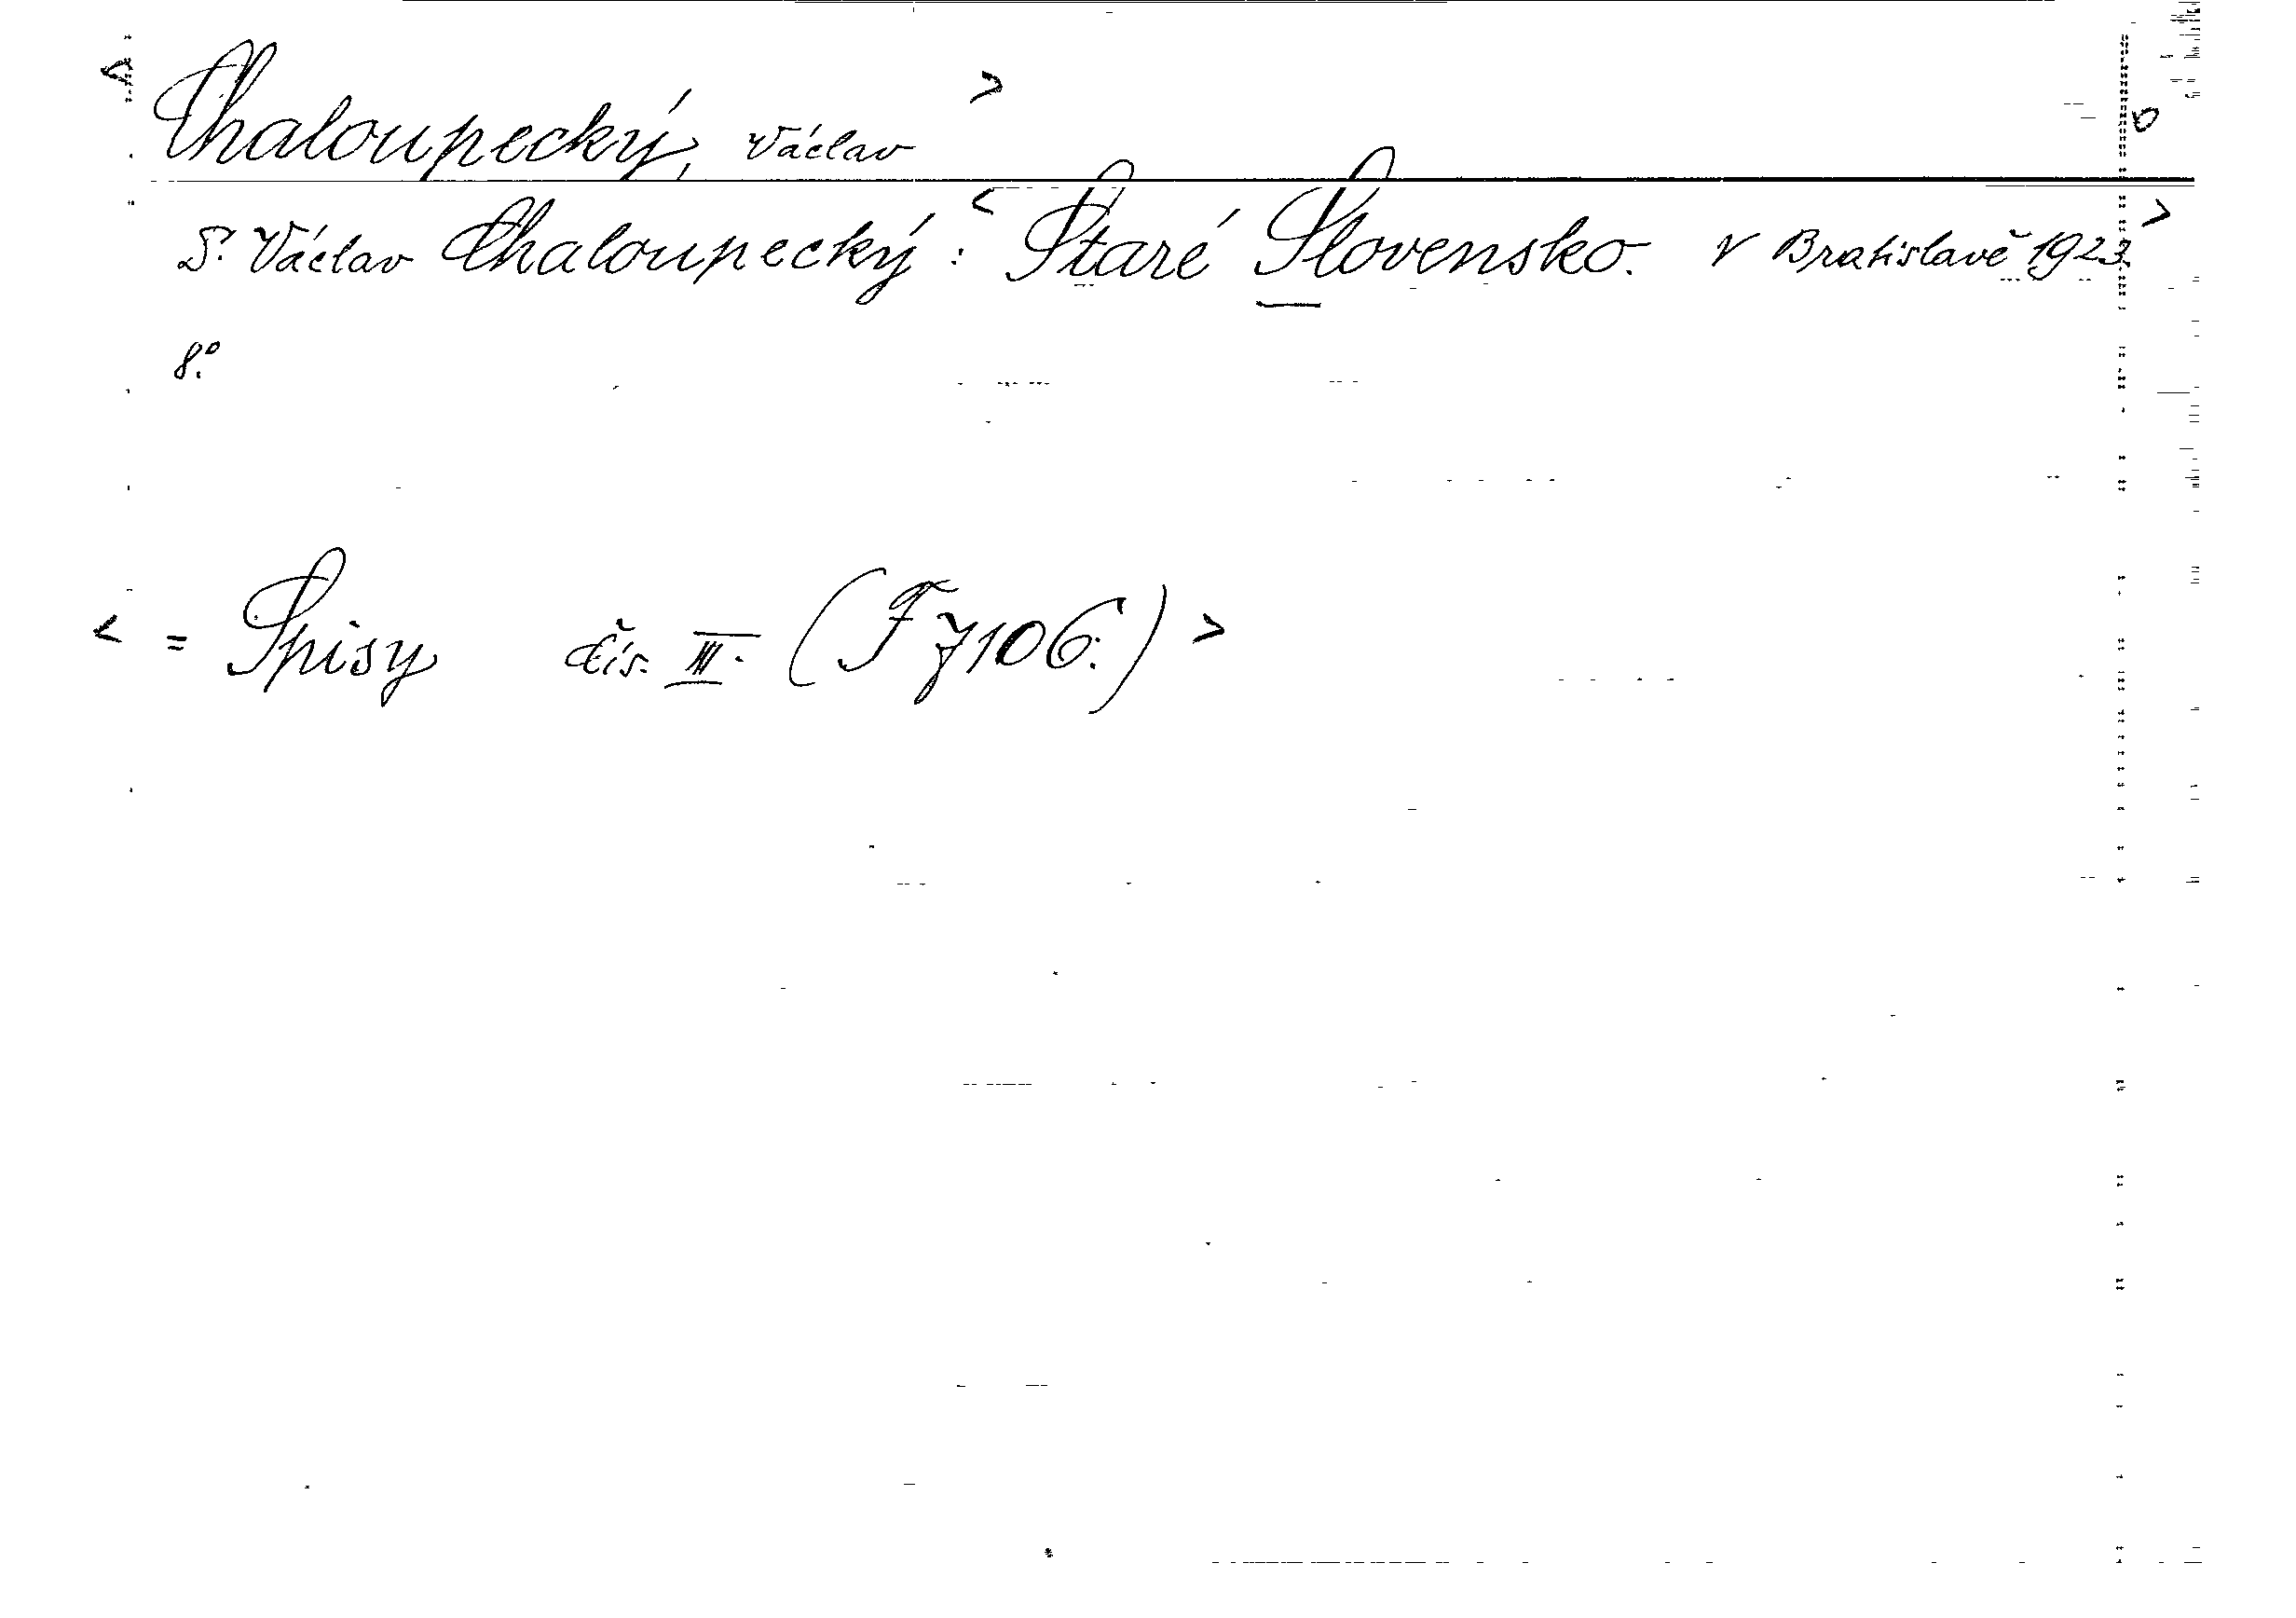 < Chaloupecký, Václav >
D. Václav Chaloupecký: < Staré Slovensko. V Bratislavě 1923. >
8.°
< = Spisy čís. III. (F 7106.) >